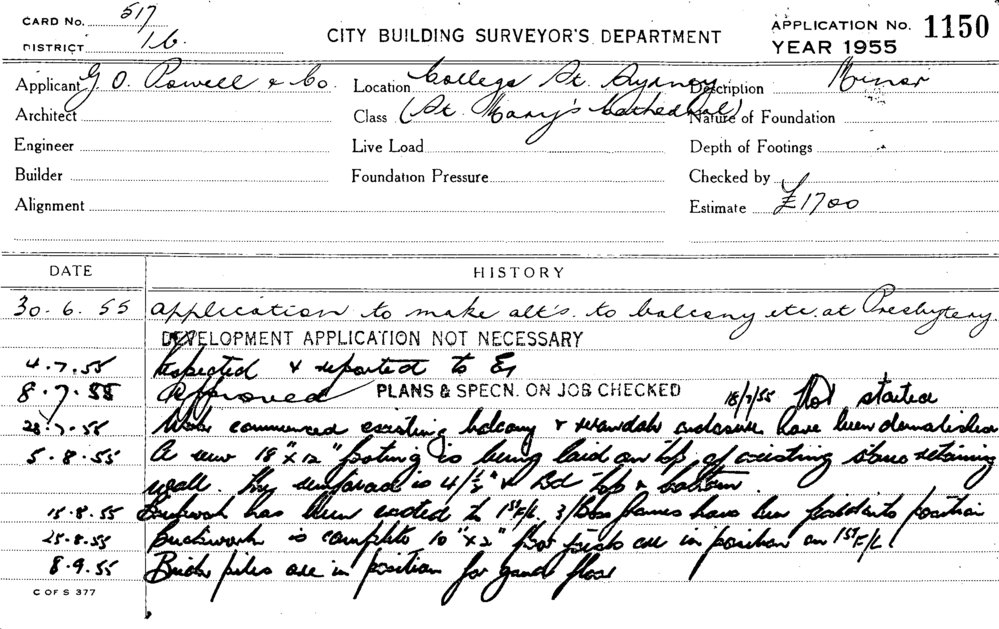 CARD No. 517
DISTRICT 16.
CITY BUILDING SURVEYOR'S DEPARTMENT
APPLICATION No. 1150
YEAR 1955
Applicant G. O. Powell & Co. Location College St. Sydney Description Minor
Architect Class (St. Mary's Cathedral) Nature of Foundation
Engineer Live Load Depth of Footings
Builder Foundation Pressure Checked by
Alignment Estimate £1700
DATE HISTORY
30.6.55 application to make alt's. to balcony etc. at Presbytery.
DEVELOPMENT APPLICATION NOT NECESSARY
4.7.55 Inspected & reported to
8.7.55 Approved PLANS & SPECN. ON JOB CHECKED 18/7/55 Not started
28.7.55 Work commenced existing balcony & verandah enclosure have been demolished
5.8.55 A new 18"x12" footing is being laid on top of existing stone retaining
wall. The is 4/½" & top & bottom.
15.8.55 Brickwork has been erected to 1st F/L frames have been position
25.8.55 Brickwork is complete 10"x2" are in position on 1st F/L
8.9.55 Brick piers are in position for floor
C OF S 377